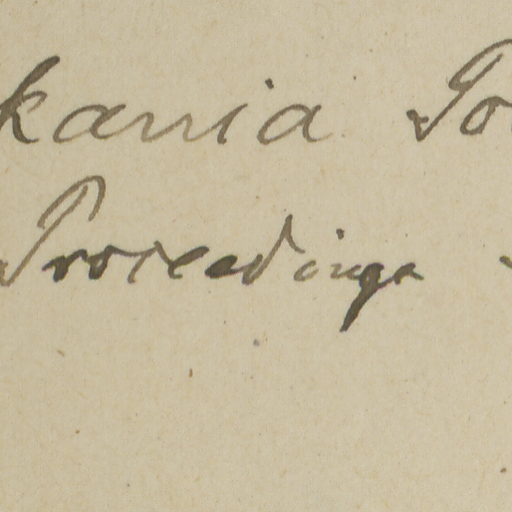 kania Po
Proceedings